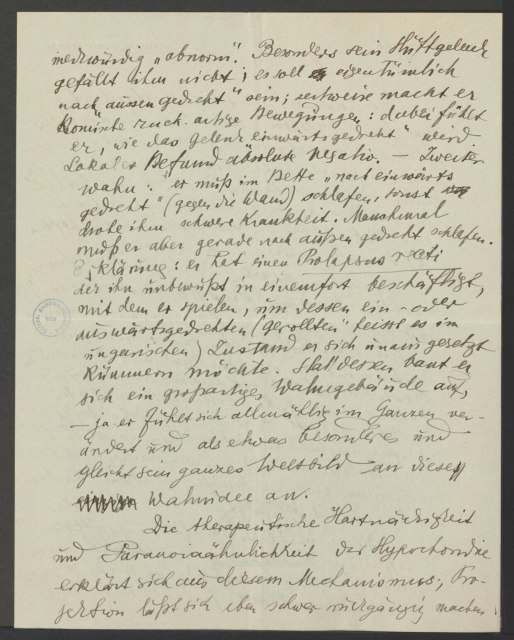 merkwürdig „abnorm". Besonders sein Hüftgelenk
gefällt ihm nicht; es soll eigentümlich
„nach aussen gedreht" sein; zeitweise macht er
komische ruck-artige Bewegungen: dabei fühlt
er, wie das Gelenk „einwärts gedreht" wird.
Lokaler Befund absolute negativ. — Zweiter
Wahn: er muß im Bette „nach einwärts
gedreht" (gegen die Wand) schlafen, sonst
drohe ihm schwere Krankheit. Manchmal
muß er aber gerade nach außen gedreht schlafen.
Erklärung: er hat einen Prolapsus recti
der ihn unbewußt in einemfort beschäftigt,
mit dem er spielen, um dessen ein- oder
auswärtsgedrehten („gerollten" heisst es im
ungarischen) Zustand er sich unausgesetzt
kümmern möchte. Statt dessen baut er
sich ein großartiges Wahngebäude auf,
— ja er fühlt sich allmählig im Ganzen ver-
ändert und als etwas besonderes und
gleicht sein ganzes Weltbild an diese
Wahnidee an.
Die therapeutische Hartnäckigkeit
und Paranoiaähnlichkeit der Hypochondrie
erklärt sich aus diesem Mechanismus; Pro-
jektion läßt sich eben schwer rückgängig machen.